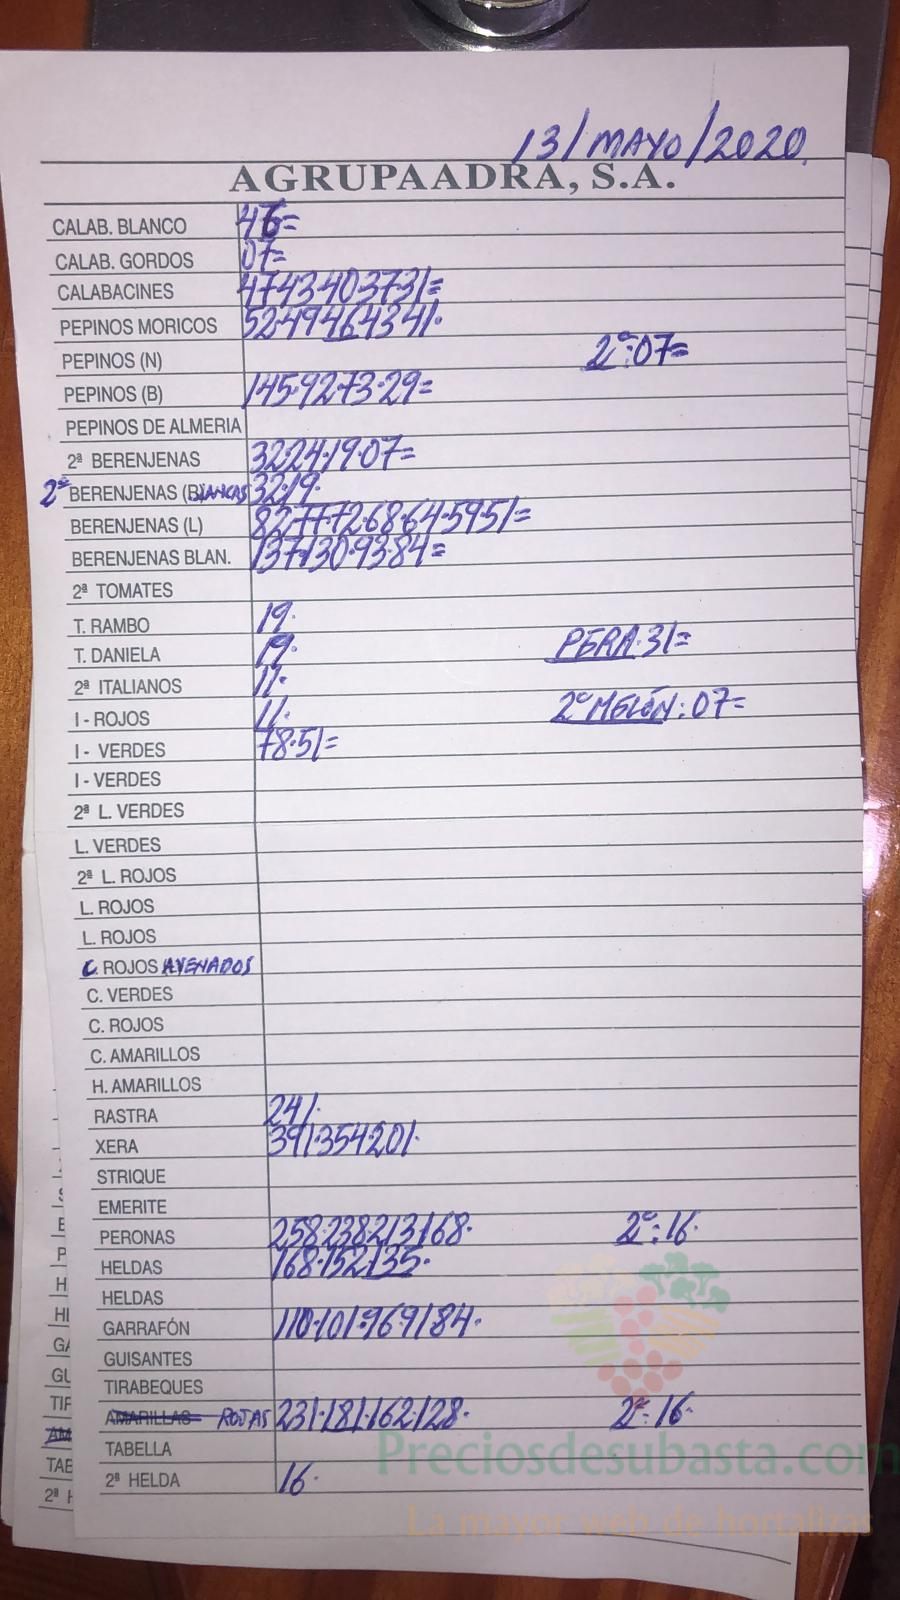 13/MAYO/2020
AGRUPAADRA, S.A.
CALAB. BLANCO 46=
CALAB. GORDOS 07=
CALABACINES 47·43·40·37·31=
PEPINOS MORICOS 52·49·46·43·41·
PEPINOS (N) 2ª:07=
PEPINOS (B) 145·92·73·29=
PEPINOS DE ALMERIA
2ª BERENJENAS 32·24·19·07=
2ª BERENJENAS (BLANCAS 32·19·
BERENJENAS (L) 82·77·72·68·64·59·51=
BERENJENAS BLAN. 137·130·93·84=
2ª TOMATES
T. RAMBO 19·
T. DANIELA 19· PERA·31=
2ª ITALIANOS 11·
I - ROJOS 11· 2ª MELÓN: 07=
I - VERDES 78·51=
I - VERDES
2ª L. VERDES
L. VERDES
2ª L. ROJOS
L. ROJOS
L. ROJOS
C. ROJOS AVENADOS
C. VERDES
C. ROJOS
C. AMARILLOS
H. AMARILLOS
RASTRA 241·
XERA 391·354·201·
STRIQUE
EMERITE
PERONAS 258·238·213·168· 2ª:16·
HELDAS 168·152·135·
HELDAS
GARRAFÓN 110·101·96·91·84·
GUISANTES
TIRABEQUES
AMARILLAS ROJAS 231·181·162·128· 2ª:16·
TABELLA
2ª HELDA 16·
Preciosdesubasta.com
La mayor web de hortalizas